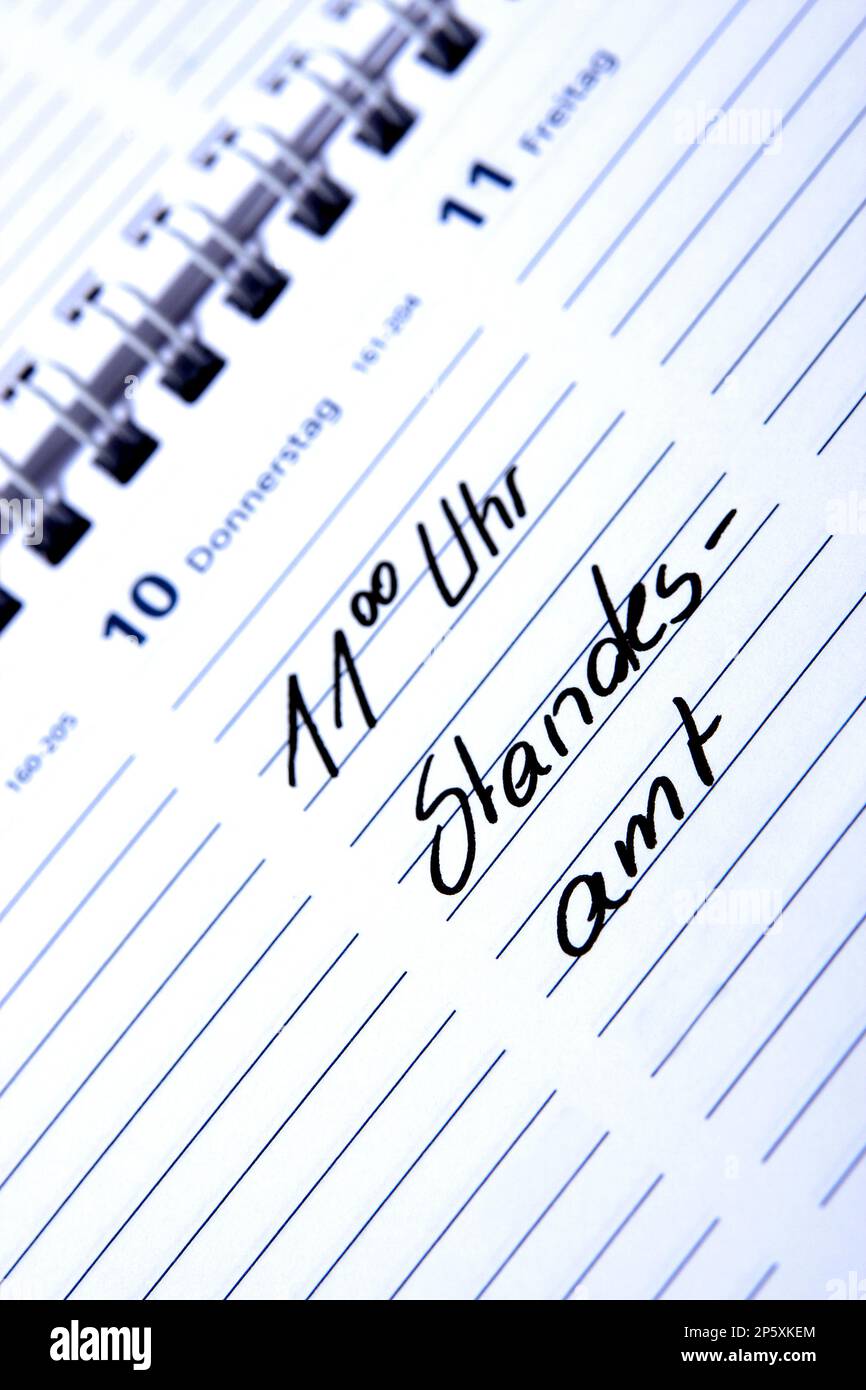 11 Freitag
161-204
10 Donnerstag
11⁰⁰ Uhr
Standes-
amt
160-205
alamy
alamy
a
a
a
alamy
Image ID: 2P5XKEM
www.alamy.com